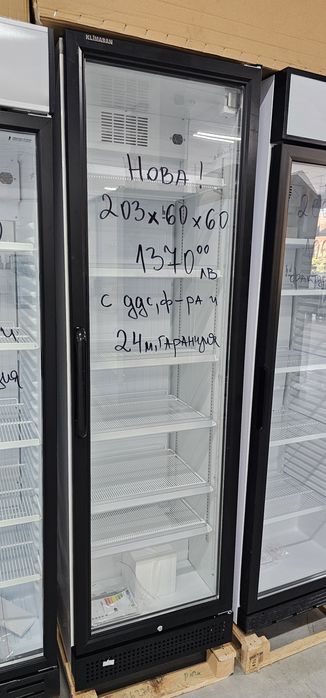 KLIMASAN
НОВА!
203x60x60
1370⁰⁰
лв
с ддс, ф-ра и
24м, гаранция